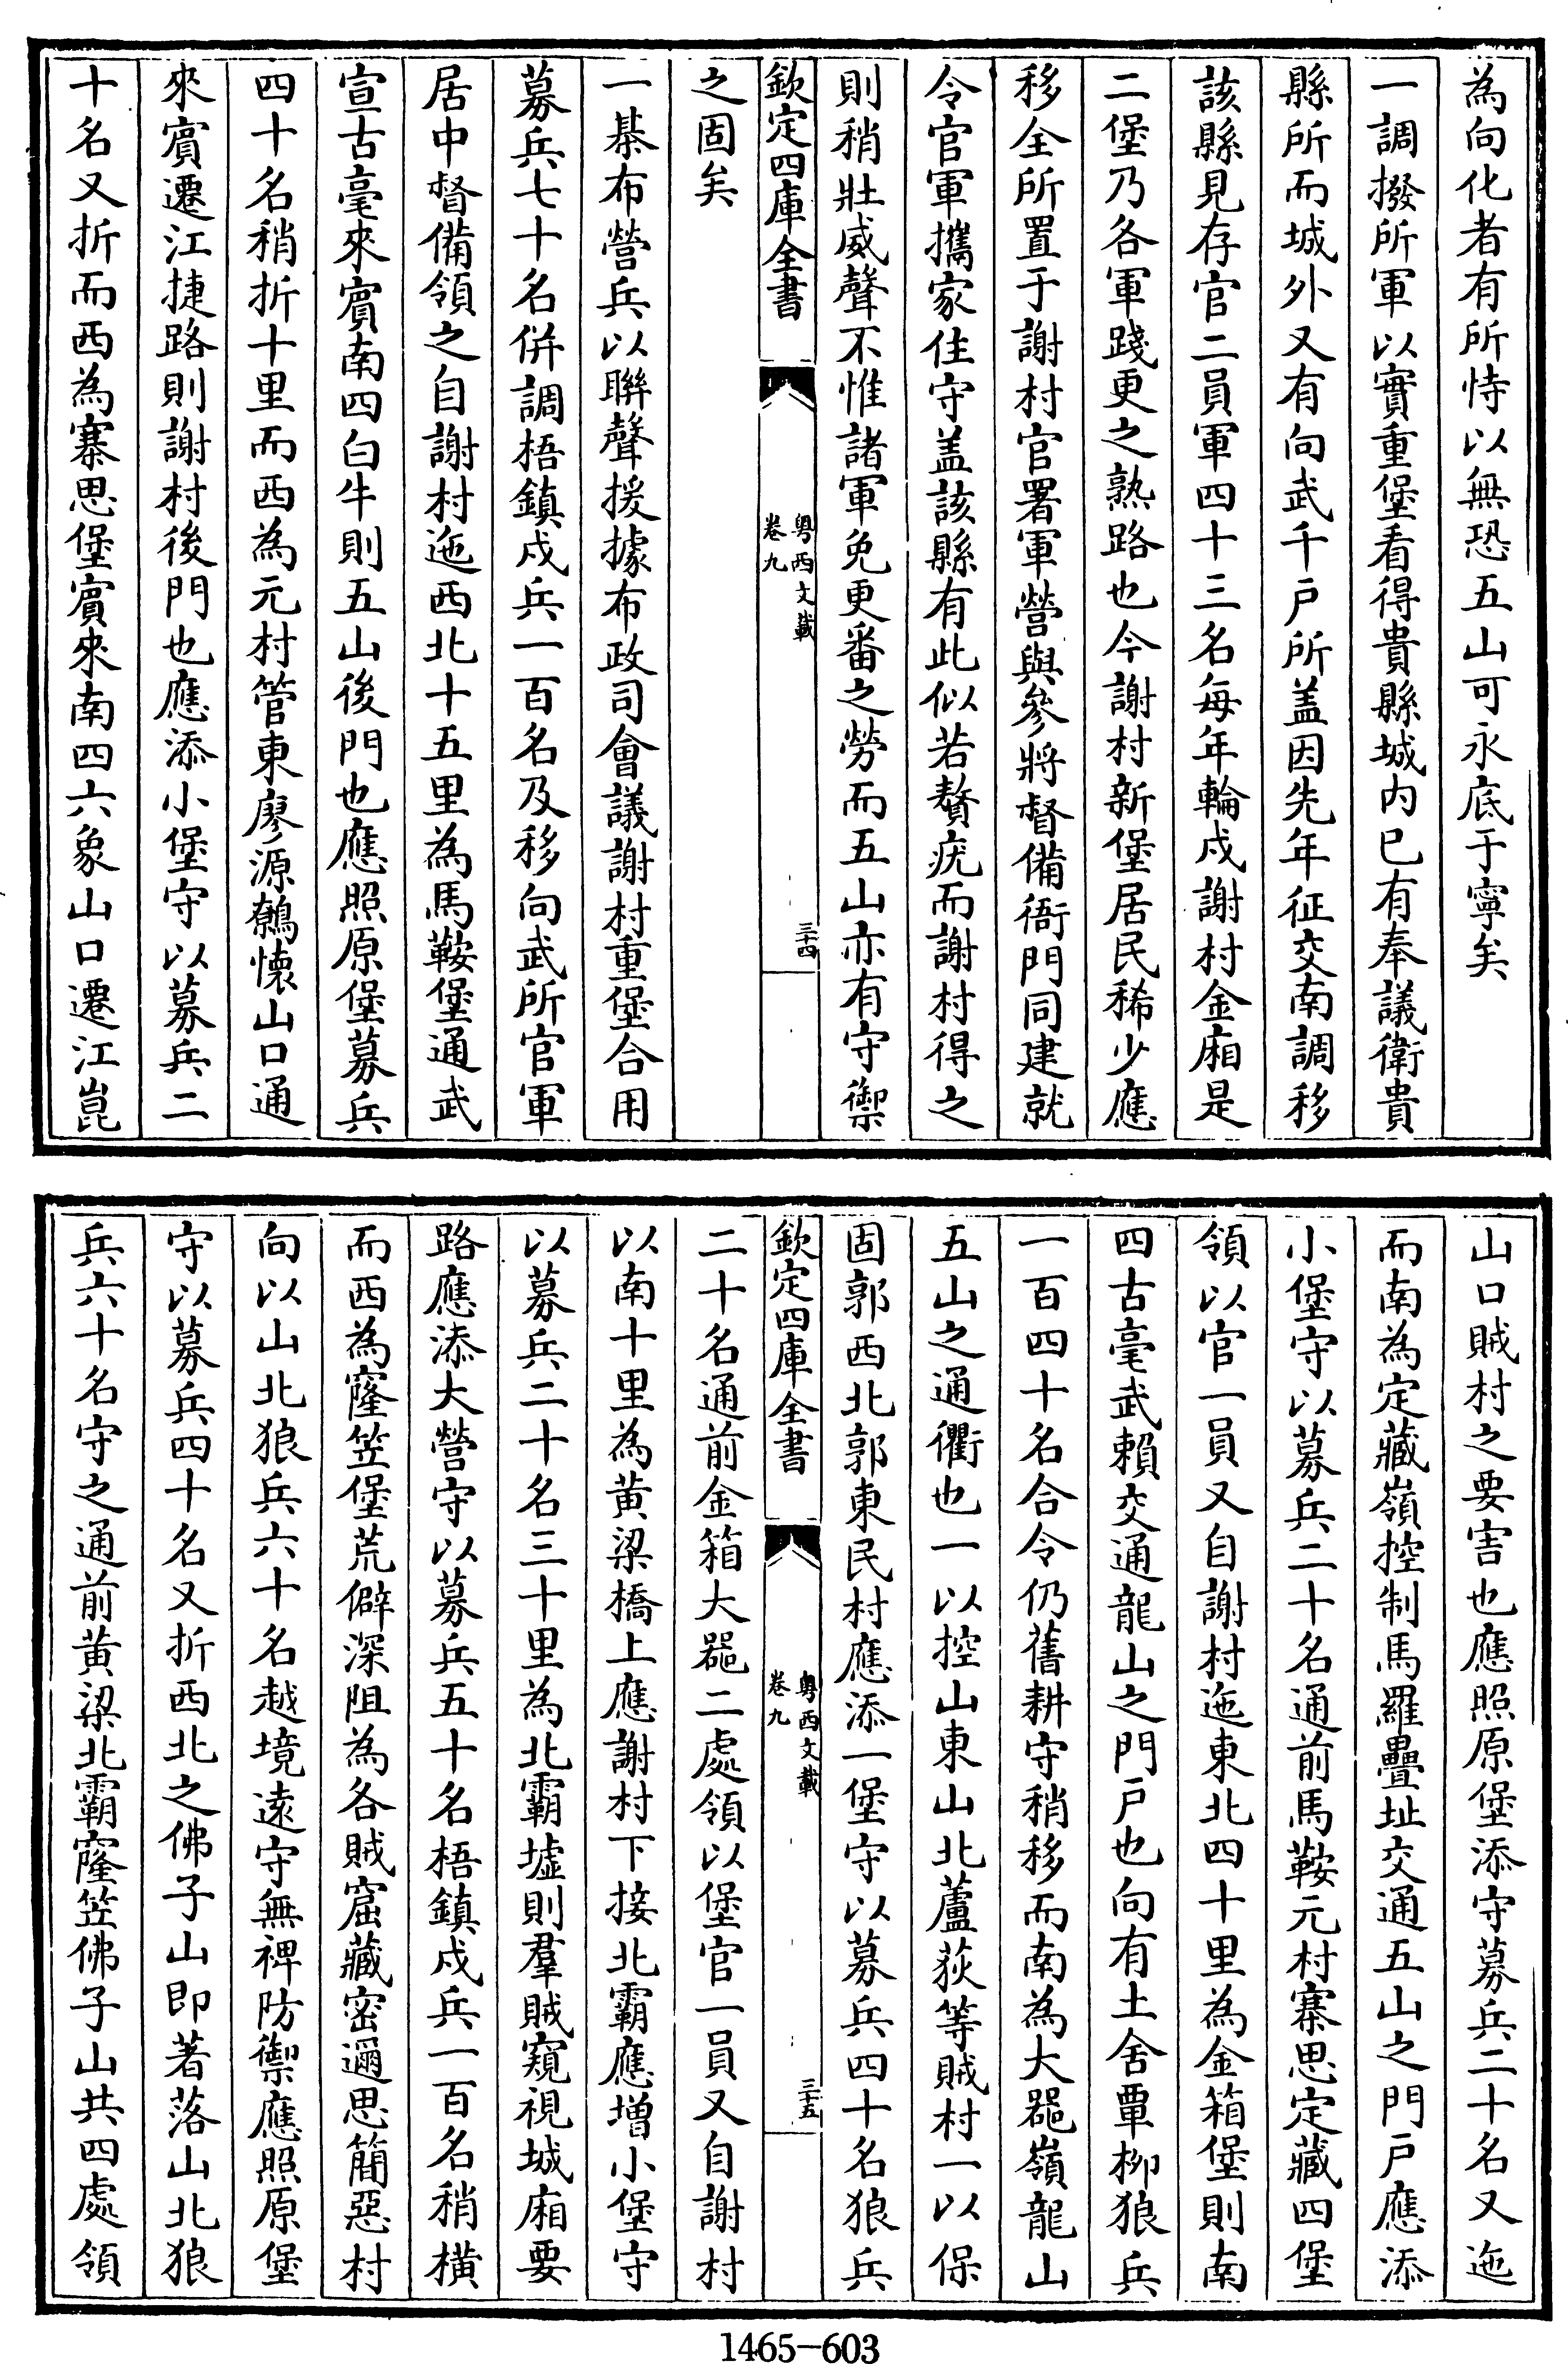 為向化者有所恃以無恐五山可永底于寧矣
一調撥所軍以實重堡看得貴縣城内已有奉議衛貴
縣所而城外又有向武千戶所盖因先年征交南調移
該縣見存官二員軍四十三名每年輪戍謝村金廂是
二堡乃各軍踐更之熟路也今謝村新堡居民稀少應
移全所置于謝村官署軍營與參將督備衙門同建就
令官軍攜家住守盖該縣有此似若贅疣而謝村得之
則稍壯威聲不惟諸軍免更番之勞而五山亦有守禦
欽定四庫全書
粤西文載
卷九
三十四
之固矣
一棊布營兵以聯聲援據布政司會議謝村重堡合用
募兵七十名併調梧鎮戍兵一百名及移向武所官軍
居中督備領之自謝村迤西北十五里為馬鞍堡通武
宣古毫來賓南四白牛則五山後門也應照原堡募兵
四十名稍折十里而西為元村管東廖源鷯懷山口通
來賓遷江捷路則謝村後門也應添小堡守以募兵二
十名又折而西為寨思堡賓來南四六象山口遷江崑
山口賊村之要害也應照原堡添守募兵二十名又迤
而南為定藏嶺控制馬羅疊址交通五山之門戶應添
小堡守以募兵二十名通前馬鞍元村寨思定藏四堡
領以官一員又自謝村迤東北四十里為金箱堡則南
四古毫武賴交通龍山之門戶也向有土舍覃柳狼兵
一百四十名合令仍舊耕守稍移而南為大嶇嶺龍山
五山之通衢也一以控山東山北蘆荻等賊村一以保
固郭西北郭東民村應添一堡守以募兵四十名狼兵
欽定四庫全書
粤西文載
卷九
三十五
二十名通前金箱大嶇二處領以堡官一員又自謝村
以南十里為黄梁橋上應謝村下接北霸應增小堡守
以募兵二十名三十里為北霸墟則羣賊窺視城廂要
路應添大營守以募兵五十名梧鎮戍兵一百名稍橫
而西為窿笠堡荒僻深阻為各賊窟藏密邇思簡惡村
向以山北狼兵六十名越境遠守無裨防禦應照原堡
守以募兵四十名又折西北之佛子山即著落山北狼
兵六十名守之通前黄梁北霸窿笠佛子山共四處領
1465-603